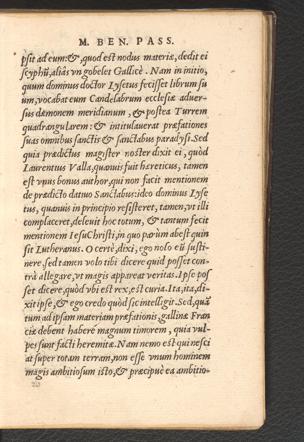 M. BEN. PASS.
psit ad eum: &, quod est nodus materiæ, dedit ei
scyphũ, aliàs vn gobelet Gallicè. Nam in initio,
quum dominus doctor Lysetus fecisset librum su
um, vocabat eum Candelabrum ecclesiæ aduer-
sus dæmonem meridianum, & postea Turrem
quadrangularem: & intitulauerat præfationes
suas omnibus sanctis & sanctabus paradysi. Sed
quia prædictus magister noster dixit ei, quòd
Laurentius Valla, quanuis fuit hæreticus, tamen
est vnus bonus author, qui non facit mentionem
de prædicto datiuo Sanctabus: ideo dominus Lyse
tus, quanuis in principio resisteret, tamen, vt illi
complaceret, deleuit hoc totum, & tantum fecit
mentionem Iesu Christi, in quo parùm abest quin
sit Lutheranus. O certè, dixi, ego nolo eũ susti-
nere, sed tamen volo tibi dicere quid posset con-
trà allegare, vt magis appareat veritas. Ipse pos
set dicere, quòd vbi est rex, est curia. Ita, ita, di-
xit ipse, & ego credo quòd sic intelligit. Sed, quã
tum ad ipsam materiam præfationis, gallinæ Fran
ciæ debent habere magnum timorem, quia vul-
pes sunt facti heremitæ. Nam nemo est qui nesci
at super totam terram, non esse vnum hominem
magis ambitiosum isto, & præcipuè ea ambitio-